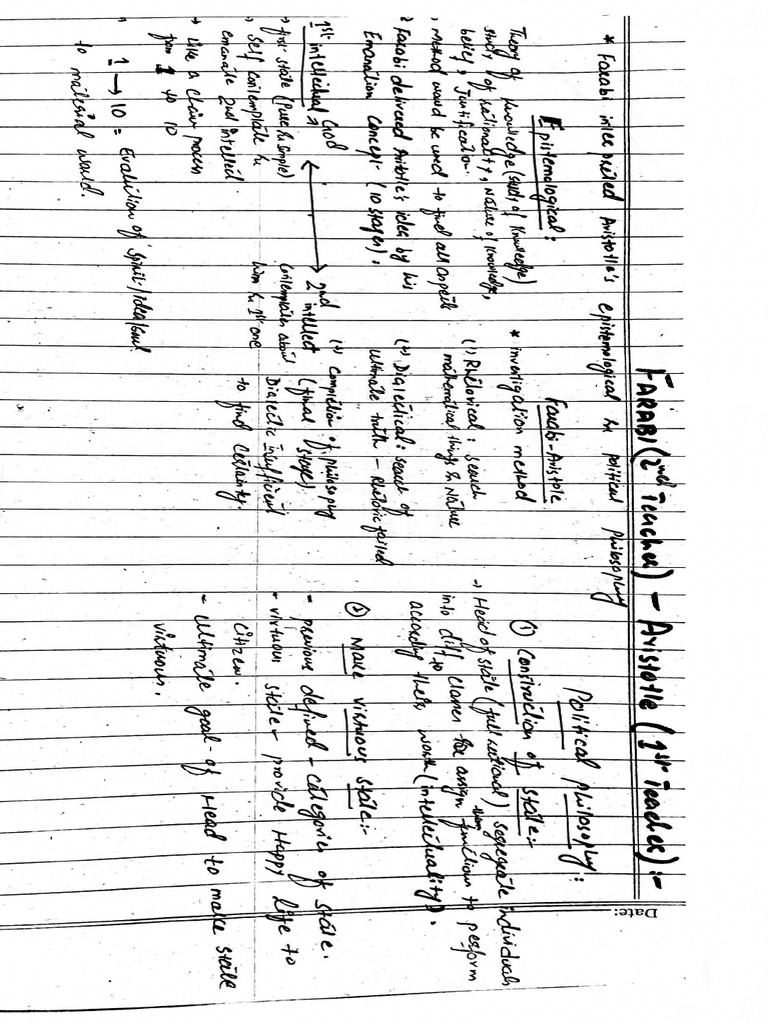 Date:
FARABI (2nd Teacher) - Aristotle (1st Teacher) :-
* Farabi interpreted Aristotle's epistemological & political philosophy
Epistemological :
Theory of knowledge (study of knowledge)
study of rationality, nature of knowledge,
belief, Justification.
, Method would be used to find all aspects
Farabi delivered Aristotle's idea by his
Emanation concept (10 stages).
God
1st intellectual
→ first state (pure & simple)
↳ Self contemplate &
emanate 2nd intellect
→ like a chain process
from 1 to 10
" 1 → 10 = Evaluition of spirit/idea/soul
to material world.
2nd
intellect
Contemplates about
him & 1st one
Farabi-Aristotle
* investigation method
(1) Rhetorical : search
mathematical things & Nature
(2) Dialectical : search of
ultimate truth - Rhetoric failed
Completion of philosophy
(final stage)
Dialectic insufficient
to find certainty.
Political philosophy :
① Construction of state:-
→ Head of state (full rational) segregate individuals
into diff classes & assign them functions to perform
according to their worth (intellectuality).
② Make virtuous state:-
- previous defined - categories of state.
- virtuous state - provide Happy life to
citizen.
- ultimate goal of Head to make state
virtuous.